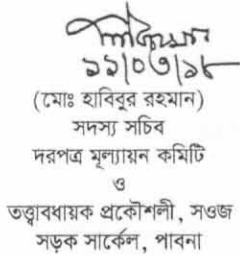 ১১/০৩/১৮
(মোঃ হাবিবুর রহমান)
সদস্য সচিব
দরপত্র মূল্যায়ন কমিটি
ও
তত্ত্বাবধায়ক প্রকৌশলী, সওজ
সড়ক সার্কেল, পাবনা